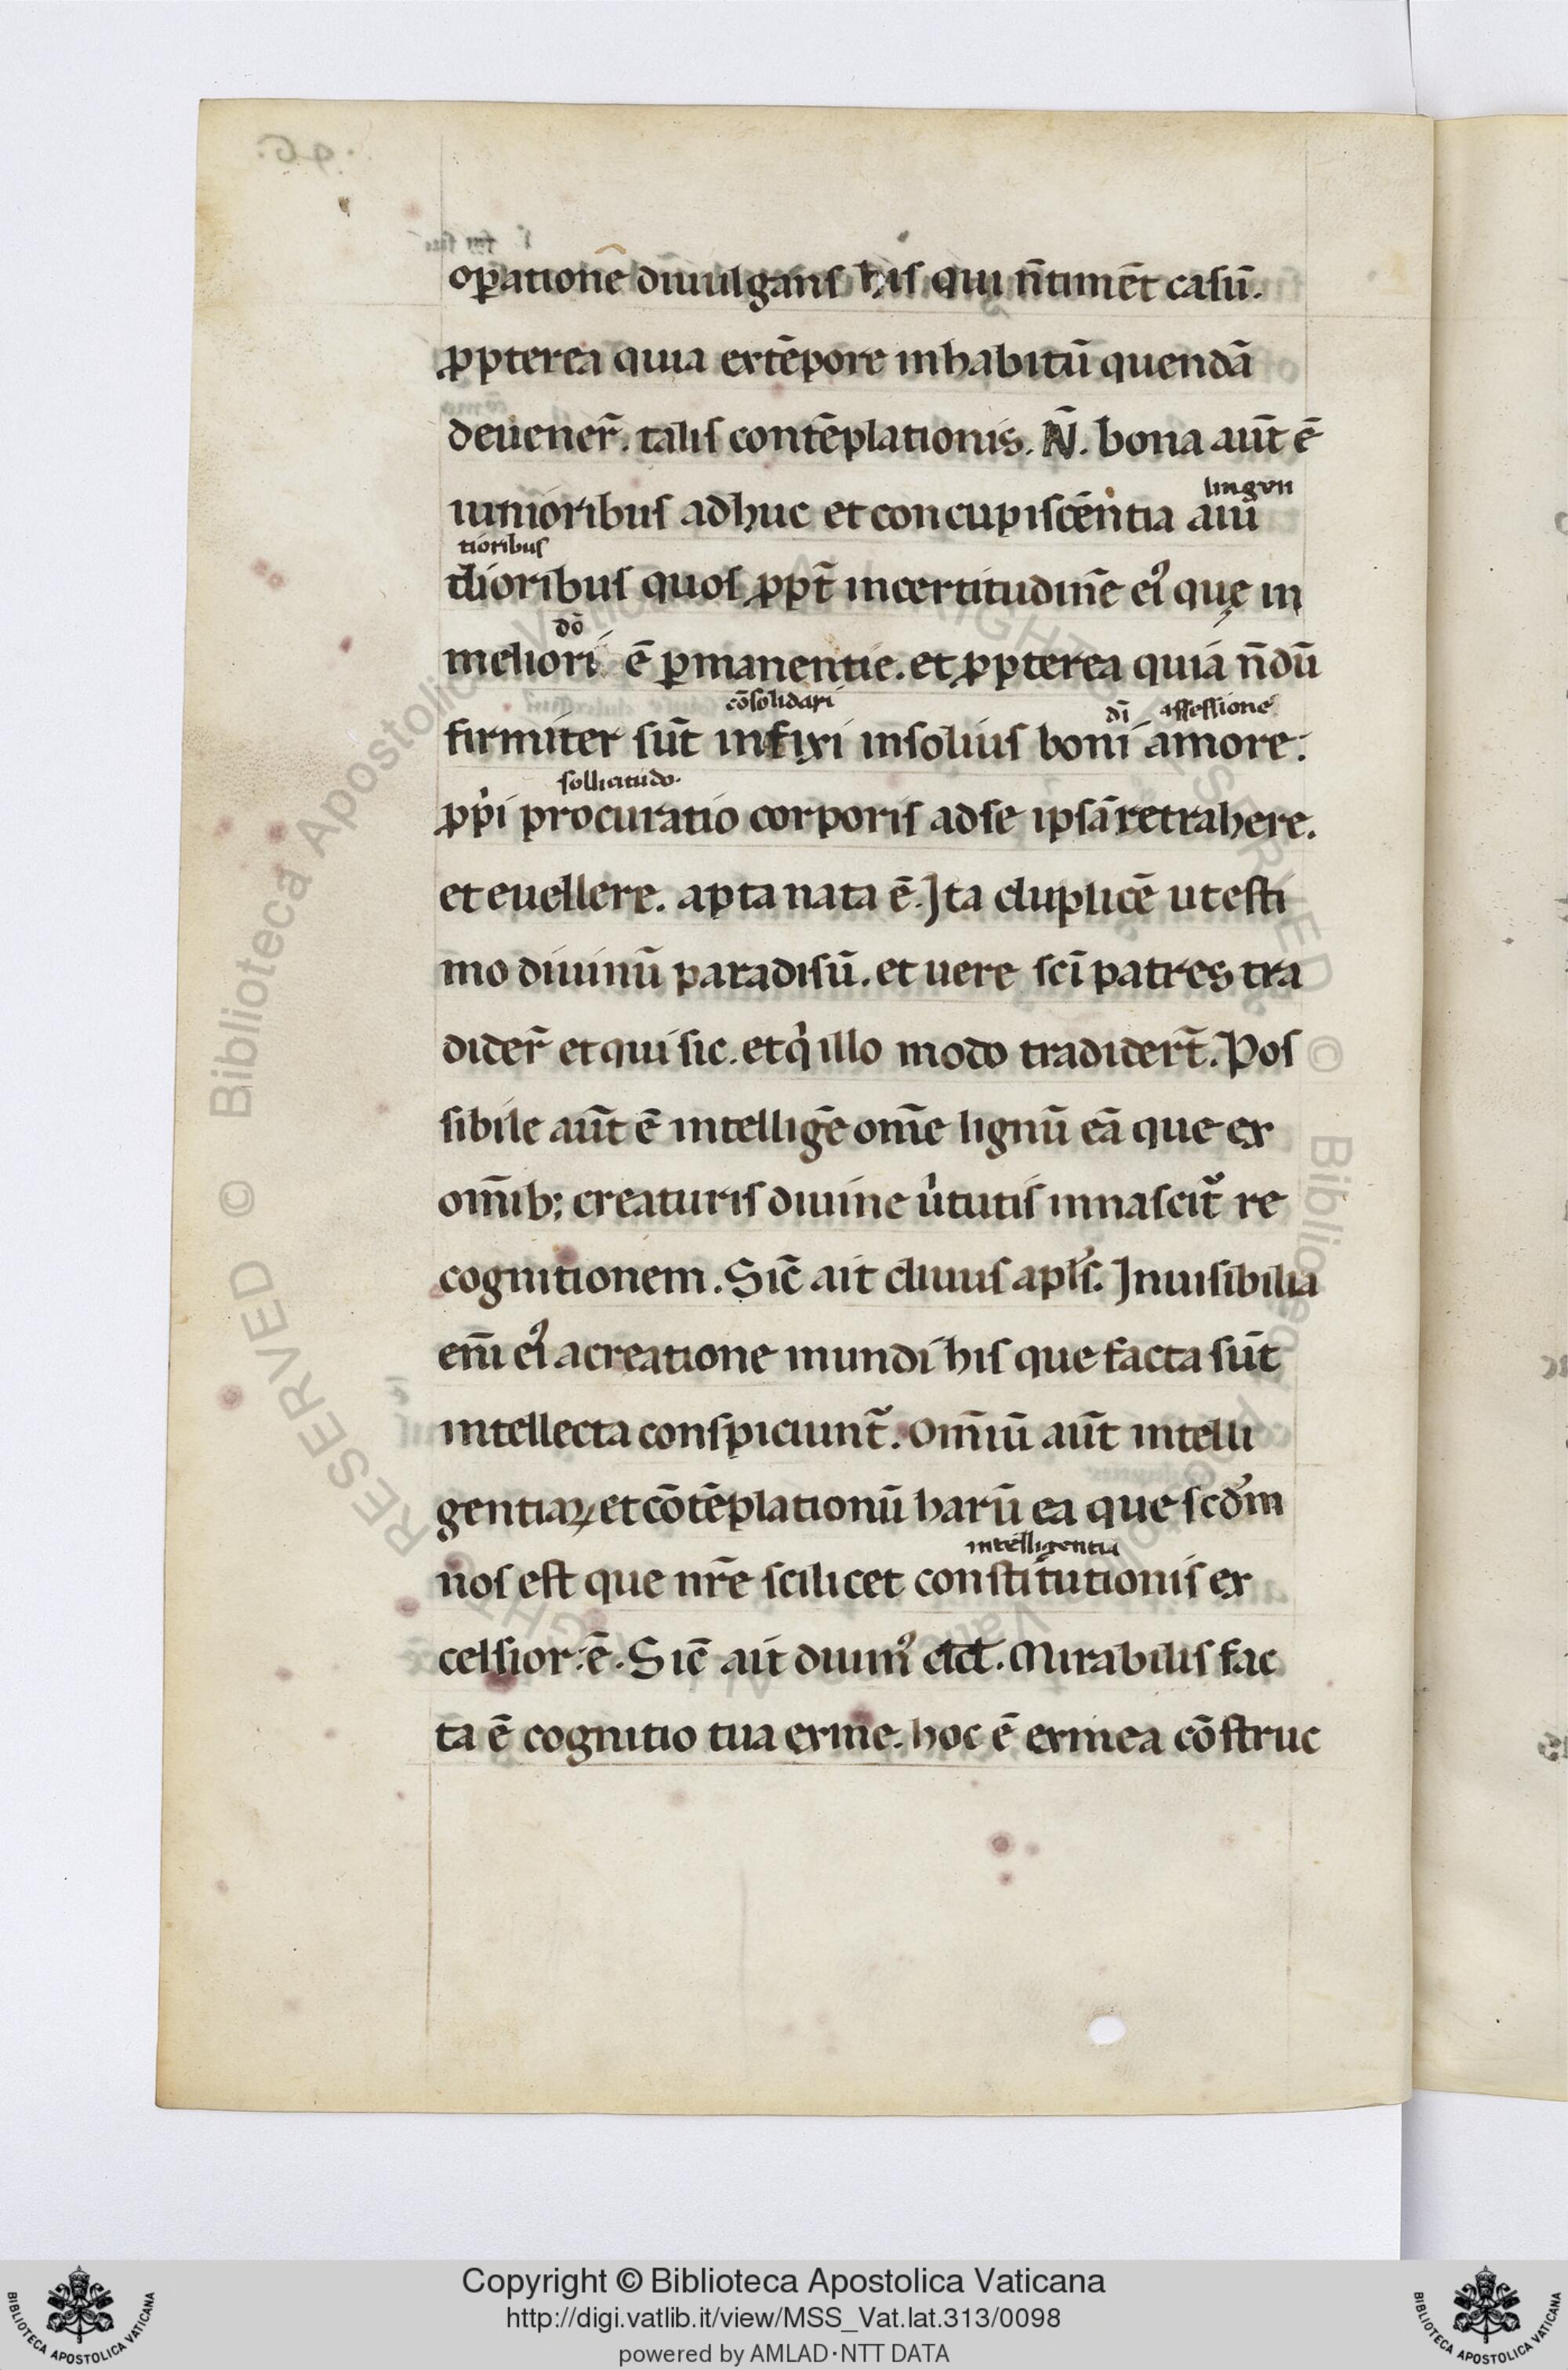 op̄atione᷑ diuulgans his qui n̄timēt casū.
ꝓpterea quia extēpore inhabitū quendā
deuener̄. talis contēplationis. N̄. bona aūt ē
lingen
iunioribus adhuc et concupiscēntia auiu
tioribus
dioribus quos ꝓpt̄ incertitudinē ei᾽ quę in
dō
meliori ē ꝑmanentie. et ꝓpterea quia n̄dū
cōsolidari dī affessione
firmiter sūt infixi insolius boni amore.
sollicitudo.
ꝓpͥi procuratio corporis adse ipsā retrahere.
et euellere. apta nata ē. Ita duplicē ut esti
mo diuinū paradisū. et uere scī patres tra
dider̄ et qui sic. et qͥ illo modo tradidert̄. Pos
sibile aūt ē intelligē om̄e lignū eā que ex
om̄ib; creaturis diuine uͥtutis innascit᷑ re
cognitionem. Sic̄ ait diuus apl᾽s. Inuisibilia
eni᷑ ei᾽ acreatione mundi his que facta sūt
intellecta conspiciunt᷑. Om̄iū aūt intelli
gentiaꝝ et cōtēplationū harū ea que scd᾽m
intelligentia
nos est que nr̄e scilicet constitutionis ex
celsior ē. Sic̄ ait diuin᾽ dd. Mirabilis fac
ta ē cognitio tua exme. hoc ē exmea cōstruc
RESERVED © Biblioteca Apostolica Vaticana
Copyright © Biblioteca Apostolica Vaticana
http://digi.vatlib.it/view/MSS_Vat.lat.313/0098
powered by AMLAD·NTT DATA
BIBLIOTECA APOSTOLICA VATICANA
BIBLIOTECA APOSTOLICA VATICANA